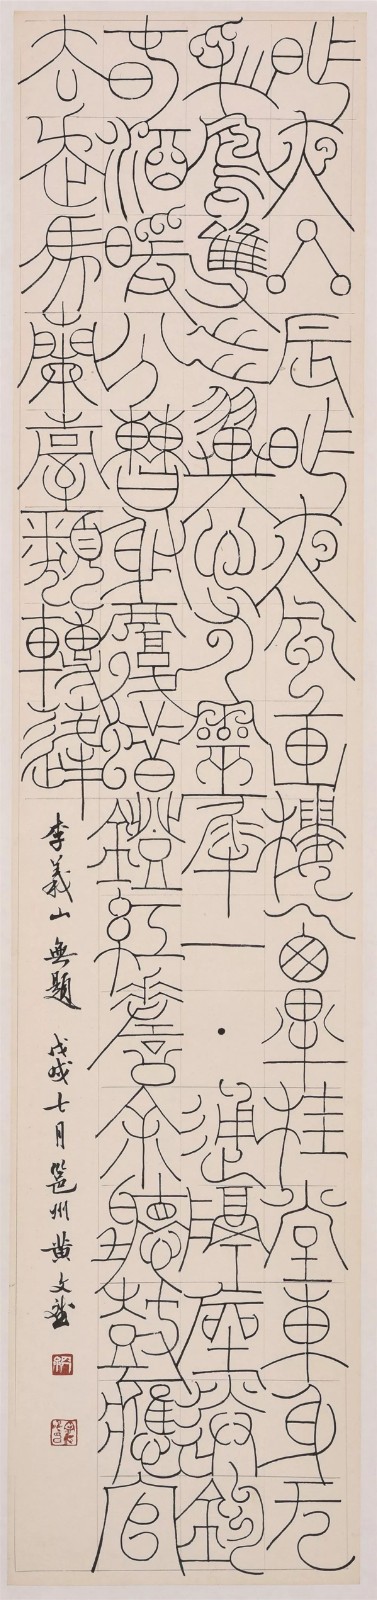 昨夜星辰昨夜風畫樓西畔桂堂東身无
彩鳳雙飛翼心有靈犀一點通隔座送鉤
春酒暖分曹射覆蠟燈紅嗟余聽鼓應官
去走馬蘭臺類轉蓬
李義山無題 戊戌七月邕州黄文斌